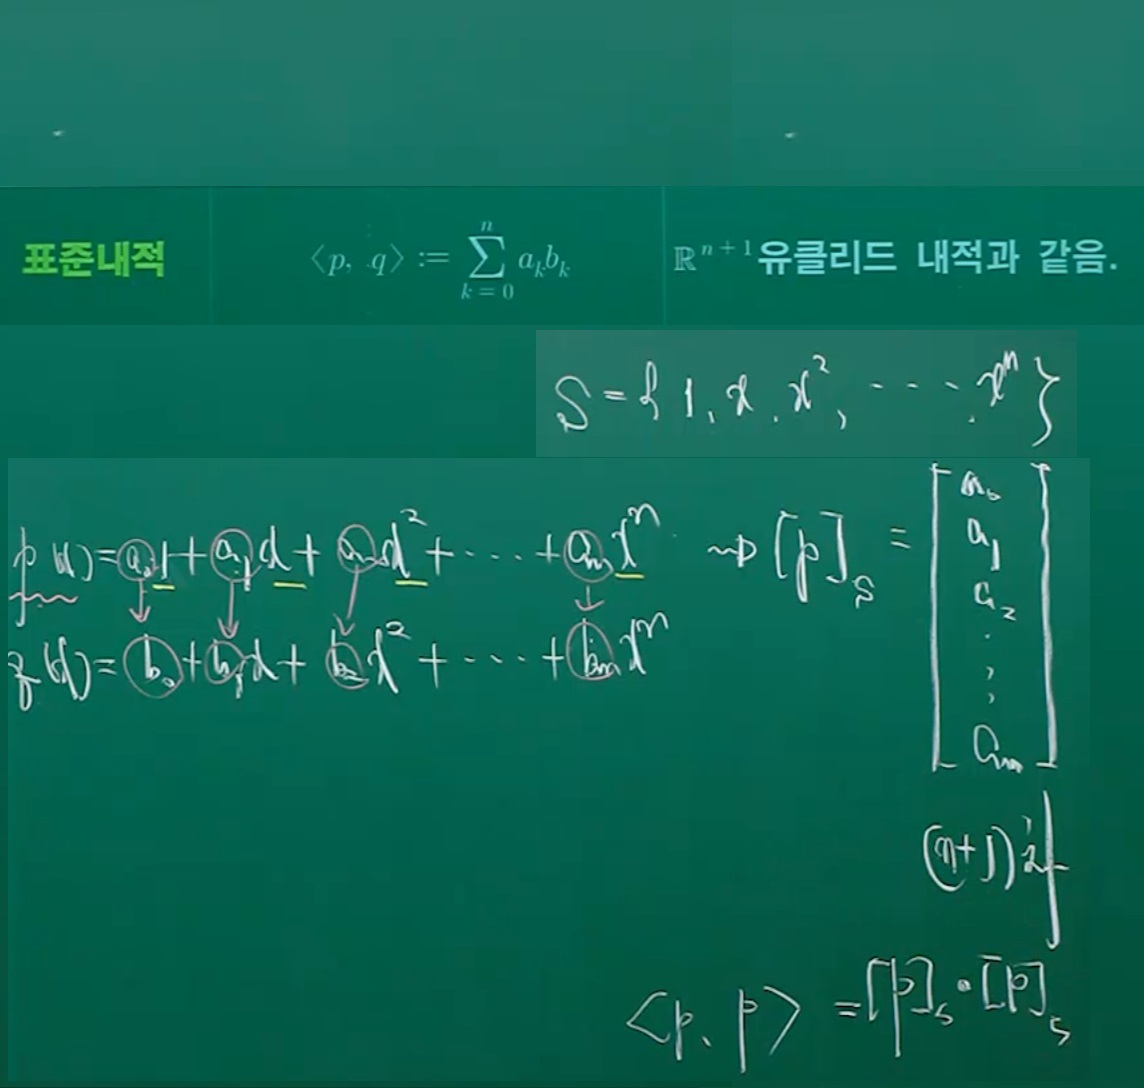 표준내적 ⟨p, q⟩ := Σ_{k=0}^{n} a_k b_k ℝ^{n+1} 유클리드 내적과 같음.
S = { 1, x, x², ⋯, xⁿ }
p(x) = a₀1 + a₁x + a₂x² + ⋯ + aₙxⁿ ⇝ [p]_S = [a₀ a₁ a₂ ⋮ aₙ]
q(x) = b₀ + b₁x + b₂x² + ⋯ + bₙxⁿ
(n+1)
⟨p, p⟩ = [p]_S · [p]_S